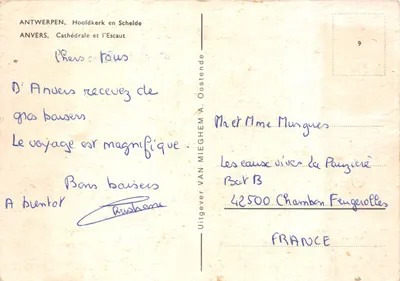 ANTWERPEN, Hooldkerk en Schelde
ANVERS, Cathédrale et l'Escaut
Chers tous
D'Anvers recevez de
gros baisers
Le voyage est magnifique.
Bons baisers
A bientot
Uitgever VAN MIEGHEM A. Oostende
9
Mr et Mme Murgues
Les eaux vives la
Bat B
42500 Chambon Feugerolles
FRANCE